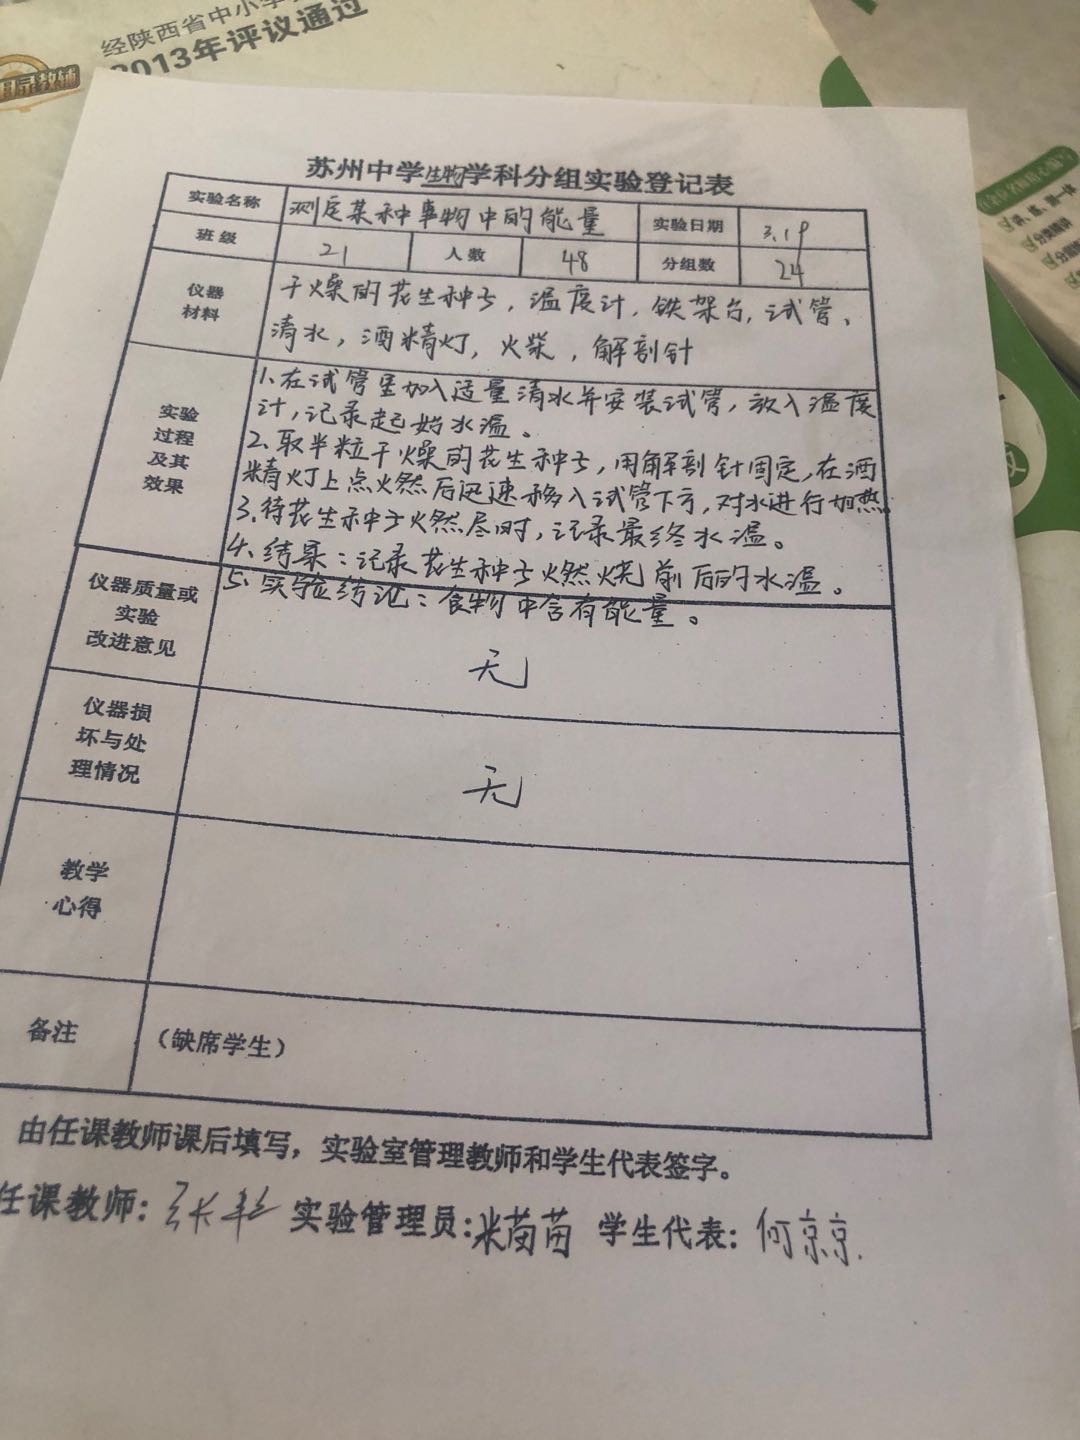 经陕西省中小学
2013年评议通过
苏州中学生物学科分组实验登记表
实验名称 测定某种事物中的能量 实验日期 3.19
班级 21 人数 48 分组数 24
仪器材料 干燥的花生种子，温度计，铁架台，试管、
清水，酒精灯，火柴，解剖针
实验过程及其效果
1.在试管里加入适量清水并安装试管，放入温度
计，记录起始水温。
2.取半粒干燥的花生种子，用解剖针固定，在酒
精灯上点火然后迅速移入试管下方，对水进行加热。
3.待花生种子火然尽时，记录最终水温。
4.结果：记录花生种子火燃烧前后的水温。
5.实验结论：食物中含有能量。
仪器质量或实验改进意见 无
仪器损坏与处理情况 无
教学心得
备注 （缺席学生）
由任课教师课后填写，实验室管理教师和学生代表签字。
任课教师: 张 实验管理员: 米苗苗 学生代表: 何京京.